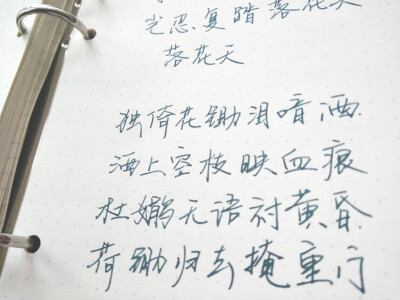 忍复踏落花天
落花天
独倚花锄泪暗洒
洒上空枝映血痕
杜鹃无语衬黄昏
荷锄归去掩重门